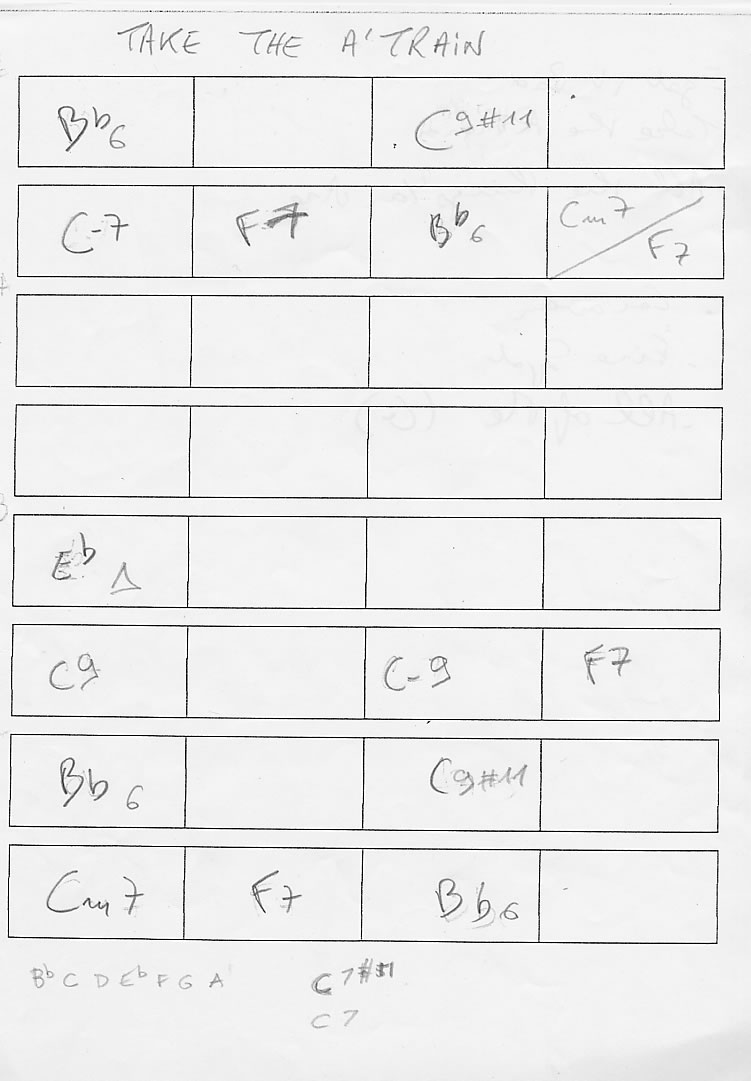 TAKE THE A' TRAIN
Bb6 C9#11
C-7 F7 Bb6 Cm7/F7
Eb△
C9 C-9 F7
Bb6 C9#11
Cm7 F7 Bb6
Bb C D Eb F G A C7#11
C7